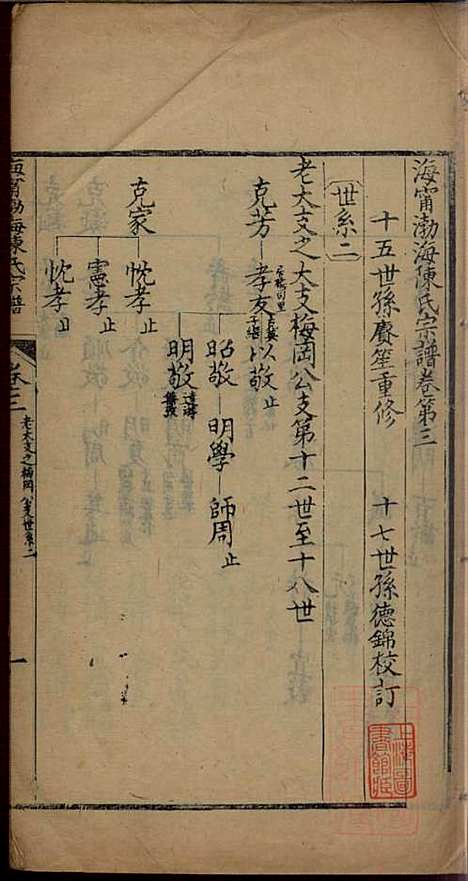 海甯渤海陳氏宗譜卷第三
十五世孫賡笙重修
十七世孫德錦校訂
世系二
老大支之大支梅岡公支第十二世至十八世
克芳
孝友
以敬
止
昭敬
明學
師周
止
明敬
克家
忱孝
止
憲孝
止
忱孝
止
海甯渤海陳氏宗譜
卷三
老大支之梅岡公支世系二
一